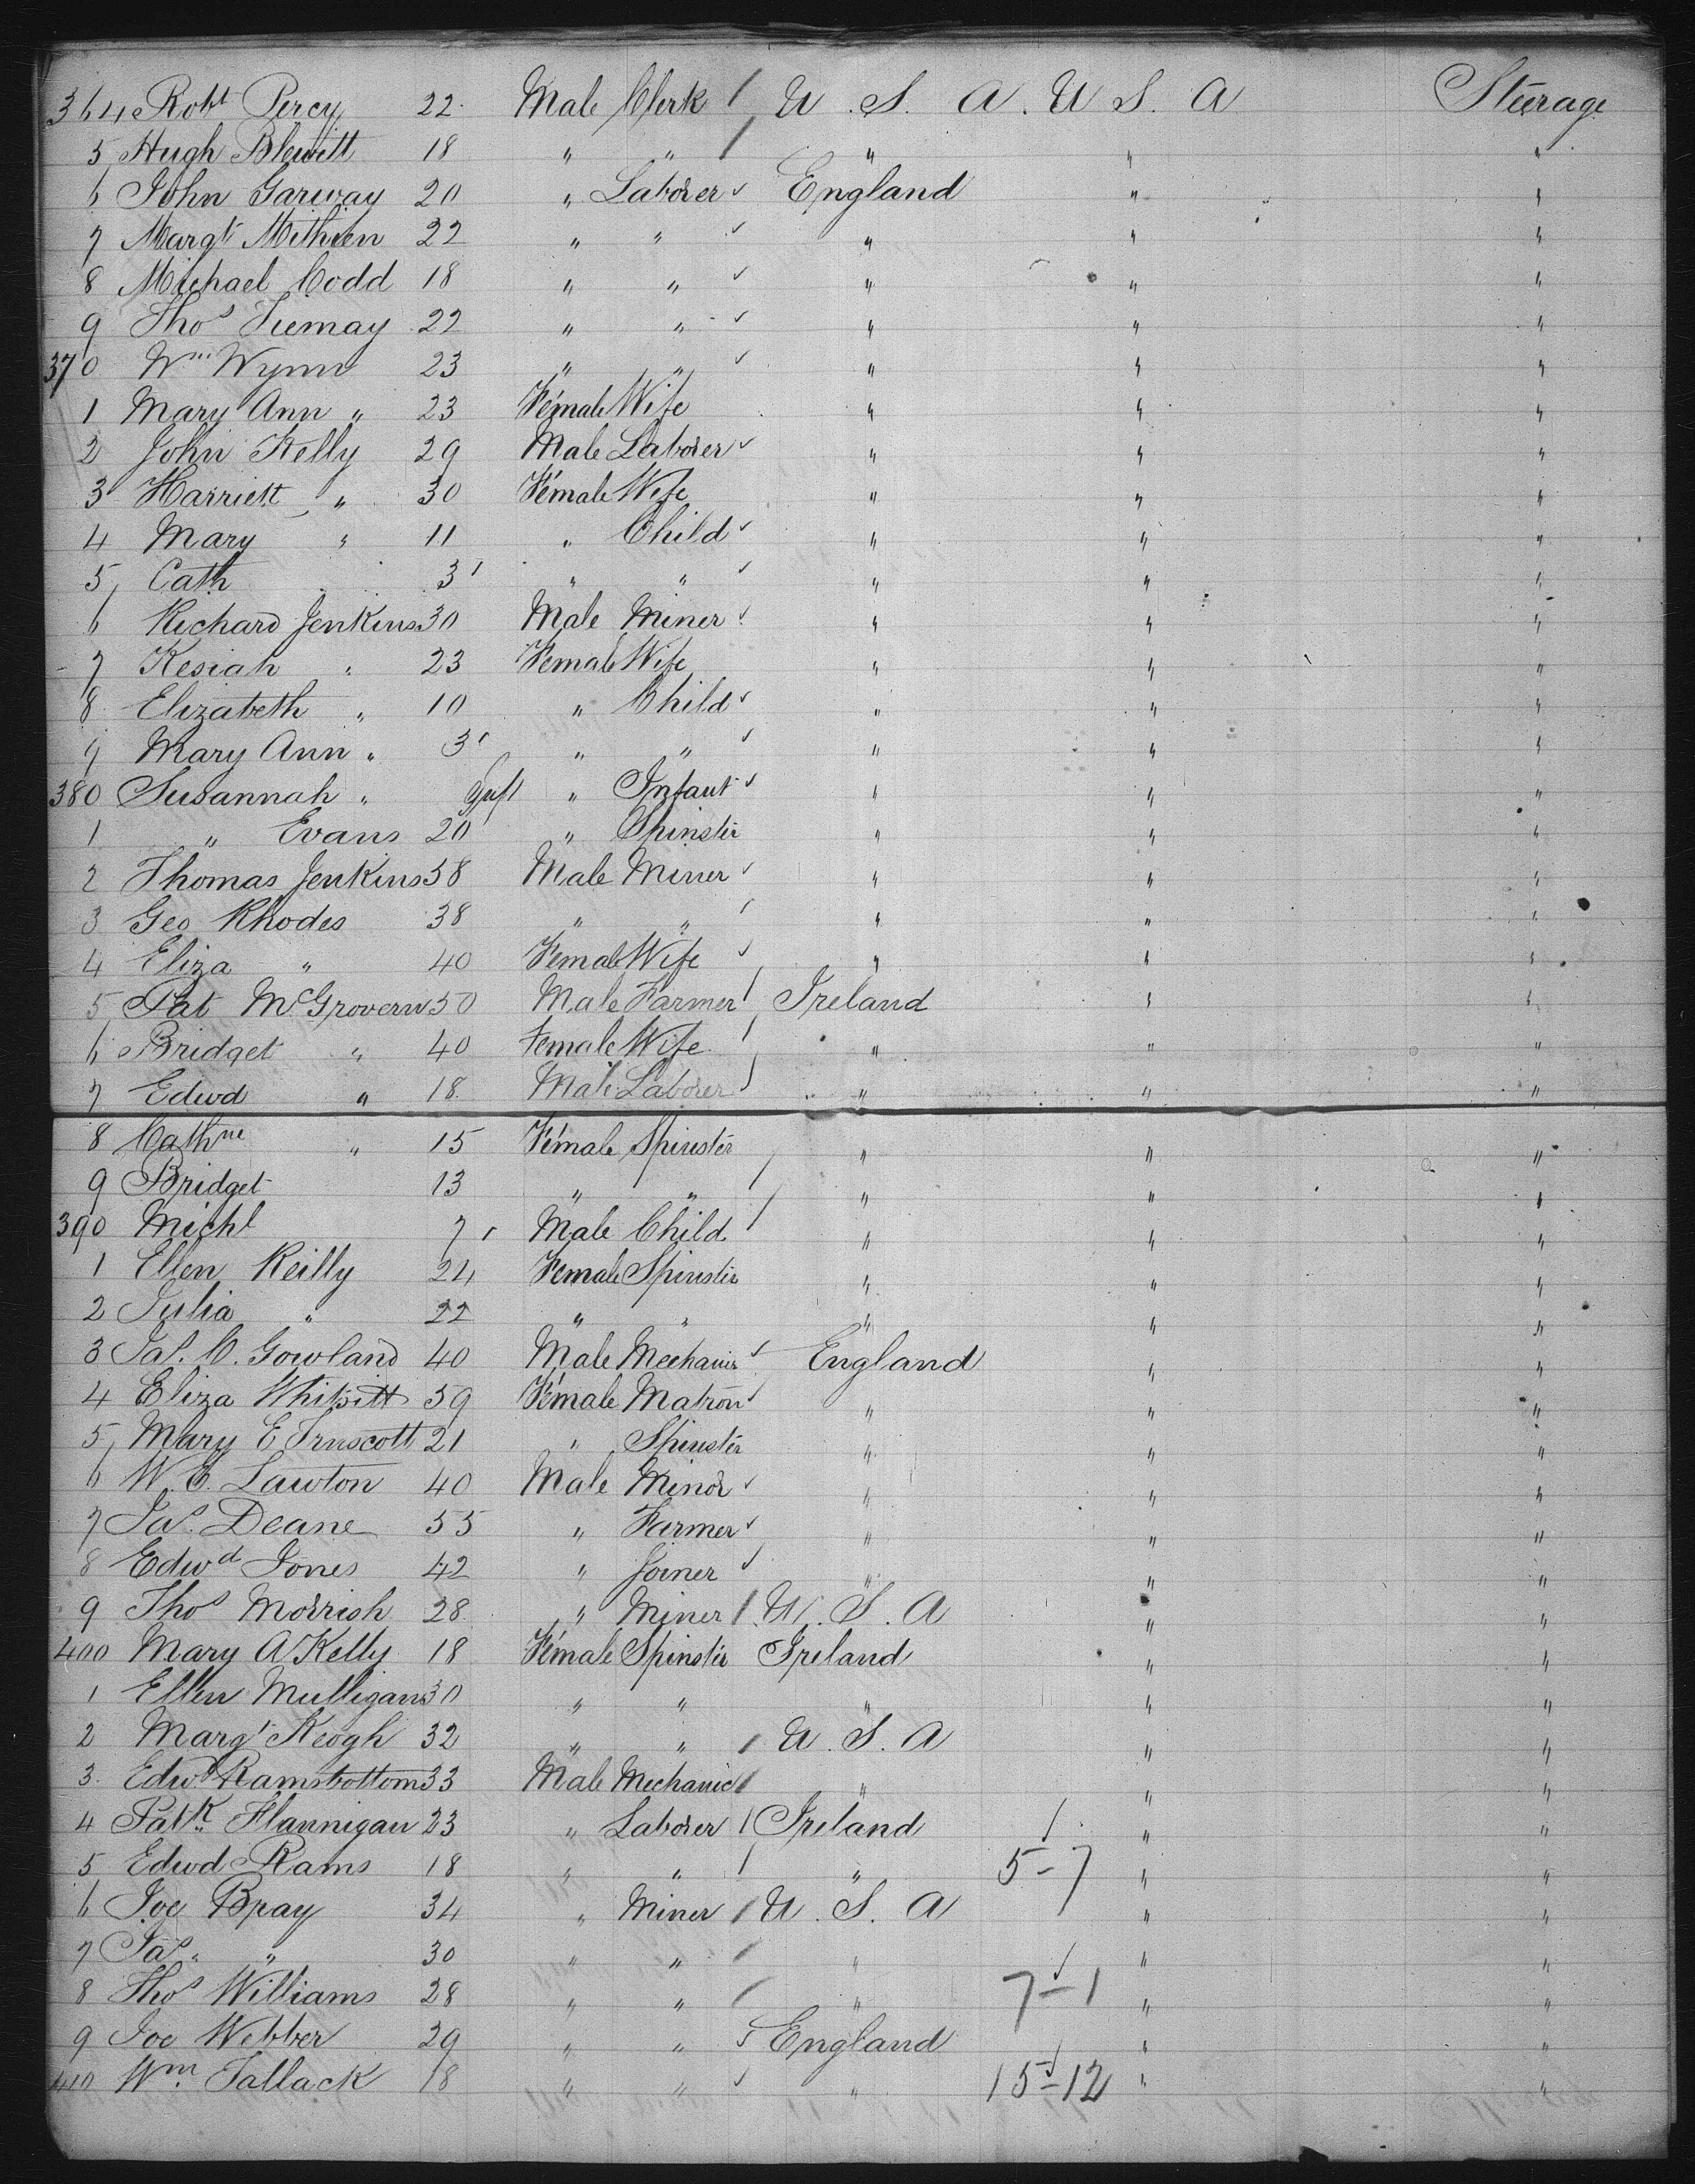 364 Robt Percy 22 Male Clerk / U. S. A. U S. A Steerage
5 Hugh Blewitt 18 " " / " " "
6 John Garway 20 " Laborer ✓ England " "
7 Margt 22 " " ✓ " " "
8 Michael Codd 18 " " ✓ " " "
9 Thos 22 " " ✓ " " "
370 Wm Wynn 23 " " ✓ " " "
1 Mary Ann " 23 Female Wife " " "
2 John Kelly 29 Male Laborer ✓ " " "
3 Harriett " 30 Female Wife " " "
4 Mary " 11 " Child ✓ " " "
5 Cath 3 " " ✓ " " "
6 Richard Jenkins 30 Male Miner ✓ " " "
7 Kesiah " 23 Female Wife " " "
8 Elizabeth " 10 " Child ✓ " " "
9 Mary Ann " 3 " " ✓ " " "
380 Susannah " Inft " Infant ✓ " " "
1 " Evans 20 " Spinster " " "
2 Thomas Jenkins 38 Male Miner ✓ " " "
3 Geo Rhodes 38 " " ✓ " " "
4 Eliza " 40 Female Wife ✓ " " "
5 Pat McGrovern 50 Male Farmer / Ireland " "
6 Bridget " 40 Female Wife / " " "
7 Edwd " 18 Male Laborer / " " "
8 Cathne " 15 Female Spinster / " " "
9 Bridget 13 " " / " " "
390 Michl 7 Male Child / " " "
1 Ellen Reilly 24 Female Spinster " " "
2 Julia " 22 " " " " "
3 Jas. C. Gowland 40 Male Mechanic ✓ England " "
4 Eliza Whitsitt 59 Female Matron ✓ " " "
5 Mary E Truscott 21 " Spinster " " "
6 W. E. Lawton 40 Male Minor ✓ " " "
7 Jas. Deane 55 " Farmer ✓ " " "
8 Edwd Jones 42 " Joiner ✓ " " "
9 Thos Morrish 28 " Miner / U. S. A " "
400 Mary A Kelly 18 Female Spinster Ireland " "
1 Ellen Mulligan 30 " " " " "
2 Margt Keogh 32 " " / U. S. A " "
3 Edwd Ramsbottom 33 Male Mechanic / " " "
4 Patk Flannigan 23 " Laborer / Ireland / " "
5 Edwd Rams 18 " " / " 5-7 " "
6 Joe Bray 34 " Miner / U. S. A " "
7 Jas. " 30 " " / " / " "
8 Thos Williams 28 " " / " 7-1 " "
9 Joe Webber 29 " " ✓ England " "
410 Wm Tallack 18 " " ✓ " 15-12 " "